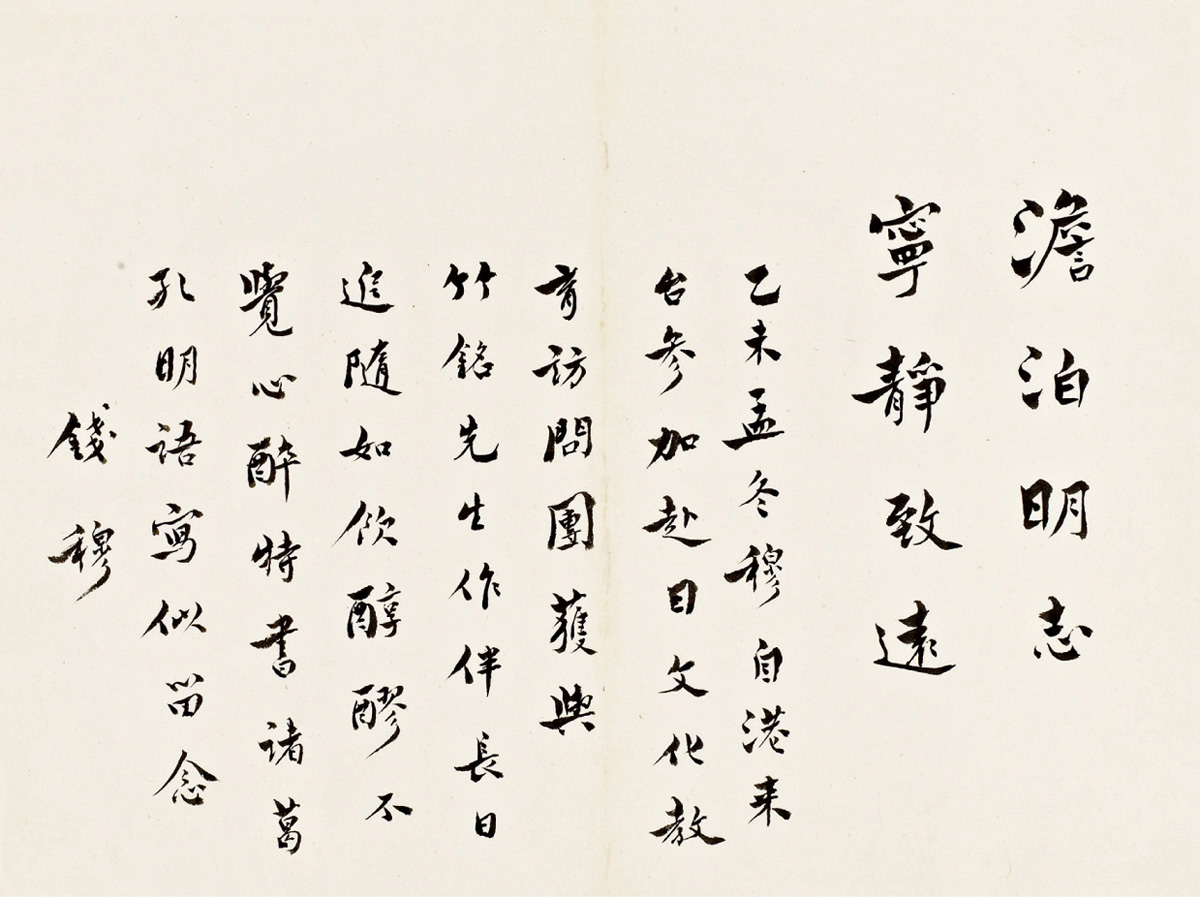 澹泊明志
寧靜致遠
乙未孟冬穆自港来
台参加赴日文化教
育訪問團獲與
竹銘先生作伴長日
追隨如飲醇醪不
覺心醉特書諸葛
孔明語寫似留念
錢穆